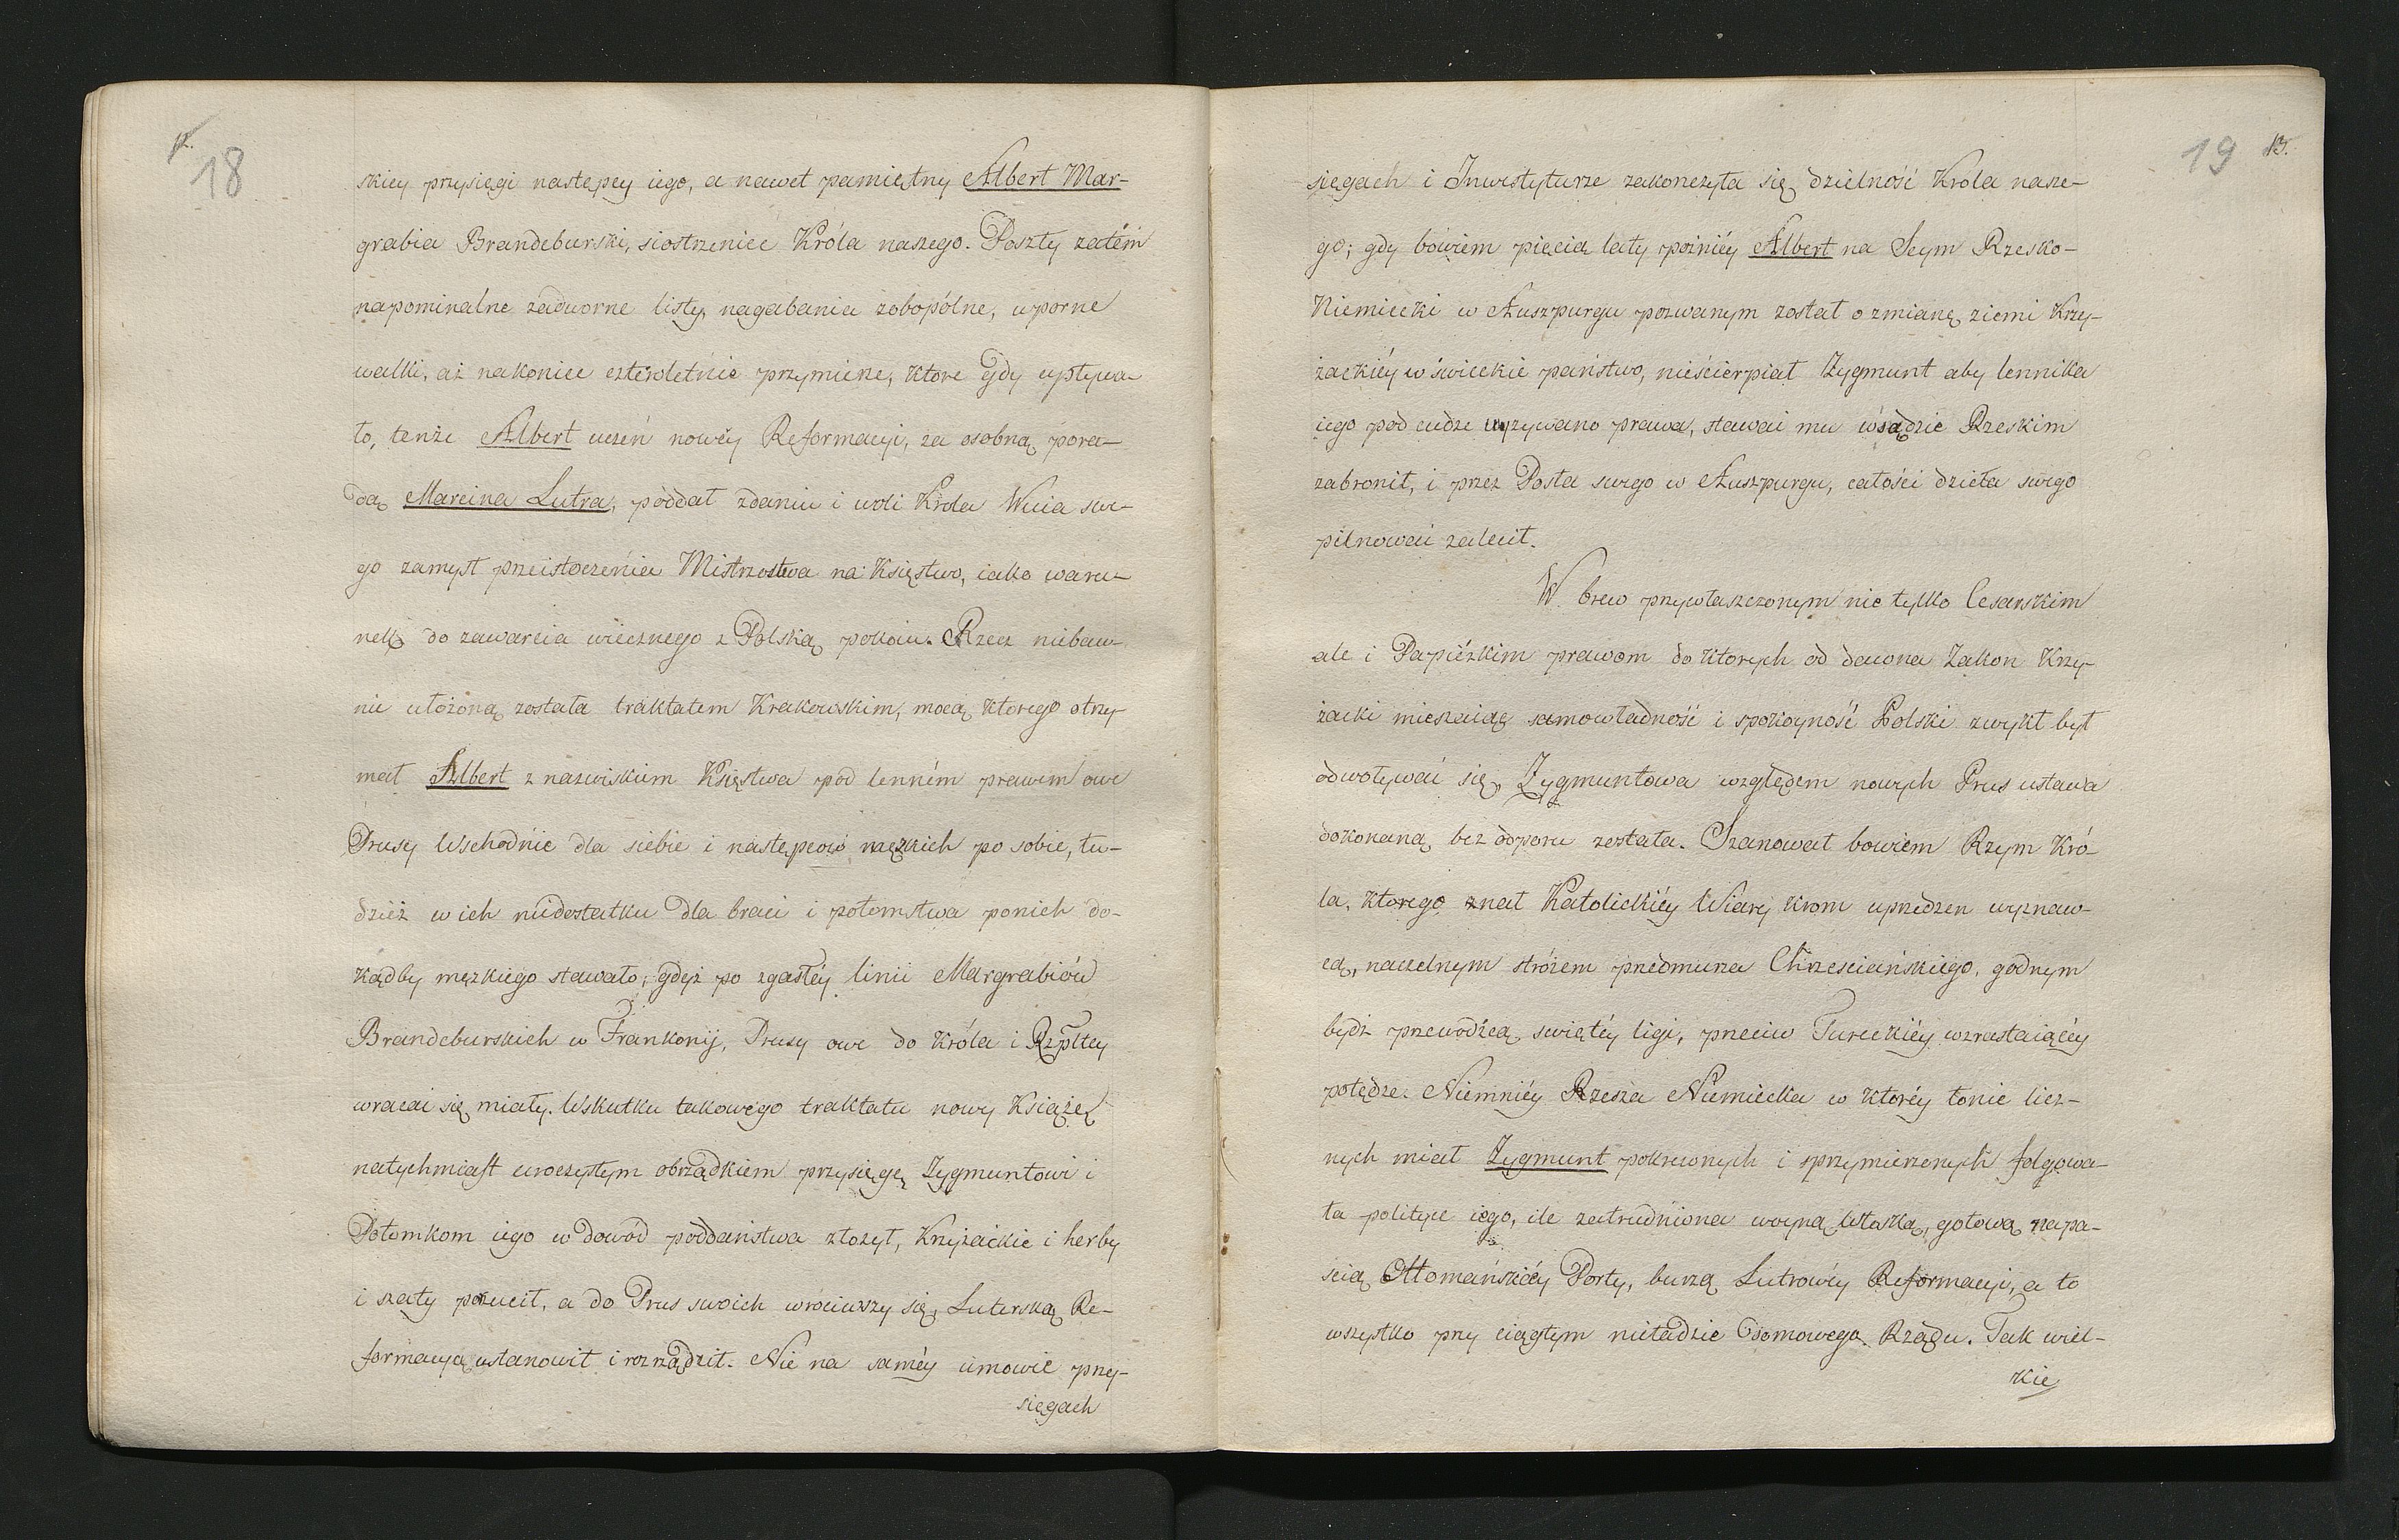 12.
18
skiey przysięgi następcy iego, a nawet pamiętny Albert Mar-
grabia Brandeburski, siostrzeniec Króla naszego. Poszły zatém
napominalne zadworne listy, nagabania zobopólne, uporne
walki, aż nakoniec czteroletnie przymierze, ktore gdy upływa-
ło, tenże Albert uczeń nowéy Reformacyi, za osobną pora-
dą Marcina Lutra, poddał zdaniu i woli Króla Wuia swe-
go zamysł przeistoczenia Mistrzostwa na Księstwo, iako waru-
nek do zawarcia wiecznego z Polską pokoiu. Rzecz niebaw-
nie ułożoną została traktatem Krakowskim, mocą ktorego otrzy-
mał Albert z nazwiskiem Księstwa pod lenném prawem owe
Prusy Wschodnie dla siebie i następców męzkich po sobie, tu-
dzież w ich niedostatku dla braci i potomstwa ponich do-
kądby męzkiego stawało, gdyż po zgasłéy linii Margrabiów
Brandeburskich w Frankonij, Prusy owe do Króla i Rzpltey
wracać się miały. Wskutku takowego traktatu nowy Książę
natychmiast uroczystym obrządkiem przysięgę Zygmuntowi i
Potomkom iego w dowód poddaństwa złożył, Krzyżackie i herby
i szaty porzucił, a do Prus swoich wróciwszy się, Luterską Re-
formacyą ustanowił i rozrządził. Nie na saméy umowie przy-
sięgach
19
13.
sięgach i Inwestyturze zakonczyła się dzielność Króla nasze-
go; gdy bowiem pięcią laty poźniéy Albert na Seym Rzesko-
Niemiecki w Auszpurgu pozwanym został o zmianę ziemi Krzy-
żackiéy w świeckie państwo, nieścierpiał Zygmunt aby lennika
iego pod cudze wyzywano prawa, stawać mu w sądzie Rzeskim
zabronił, i przez Posła swego w Auszpurgu, całości dzieła swego
pilnować zalecił.
W brew przywłaszczonym nie tylko Cesarskim
ale i Papiézkim prawom do ktorych od dawna Zakon Krzy-
żacki mieszaiąc samowładność i spokoyność Polski zwykł był
odwoływać się, Zygmuntowa względem nowych Prus ustawa
dokonaną bez odporu została. Szanował bowiem Rzym Kró-
la, ktorego znał Katolickiéy Wiary krom uprzedzen wyznaw-
cą, naczelnym stróżem przedmurza Chrzesciańskiego, godnym
bydź przewodźcą swiętéy ligi, przeciw Tureckiéy wzrastaiącéy
potędze. Niemniéy Rzesza Niemiecka w ktoréy łonie licz-
nych miał Zygmunt pokrewnych i sprzymierzonych folgowa-
ła polityce iego, ile zatrudniona woyną Włoską, gotową napa-
ścią Ottomańskiéy Porty, burzą Lutrowéy Reformacyi, a to
wszystko przy ciągłym nieładzie domowego Rządu. Tak wiel-
kie